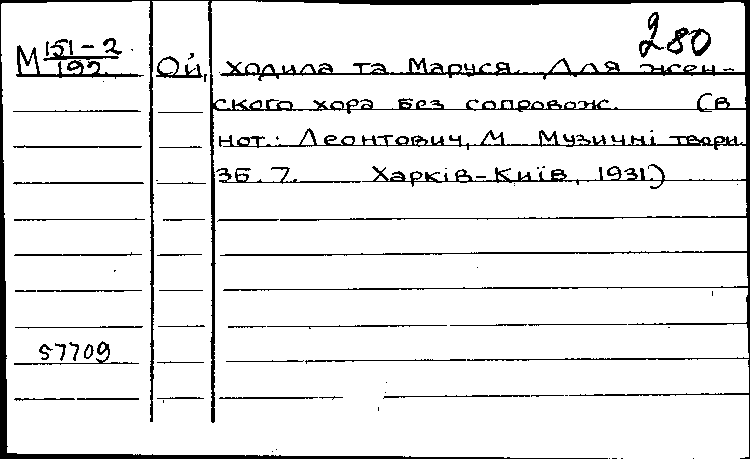 280
М 151-2
192
Ой, ходила та Маруся. Для жен-
ского хора без сопровож. (В
нот.: Леонтович, М. Музичні твори.
Зб. 7. Харків-Київ, 1931.)
57709